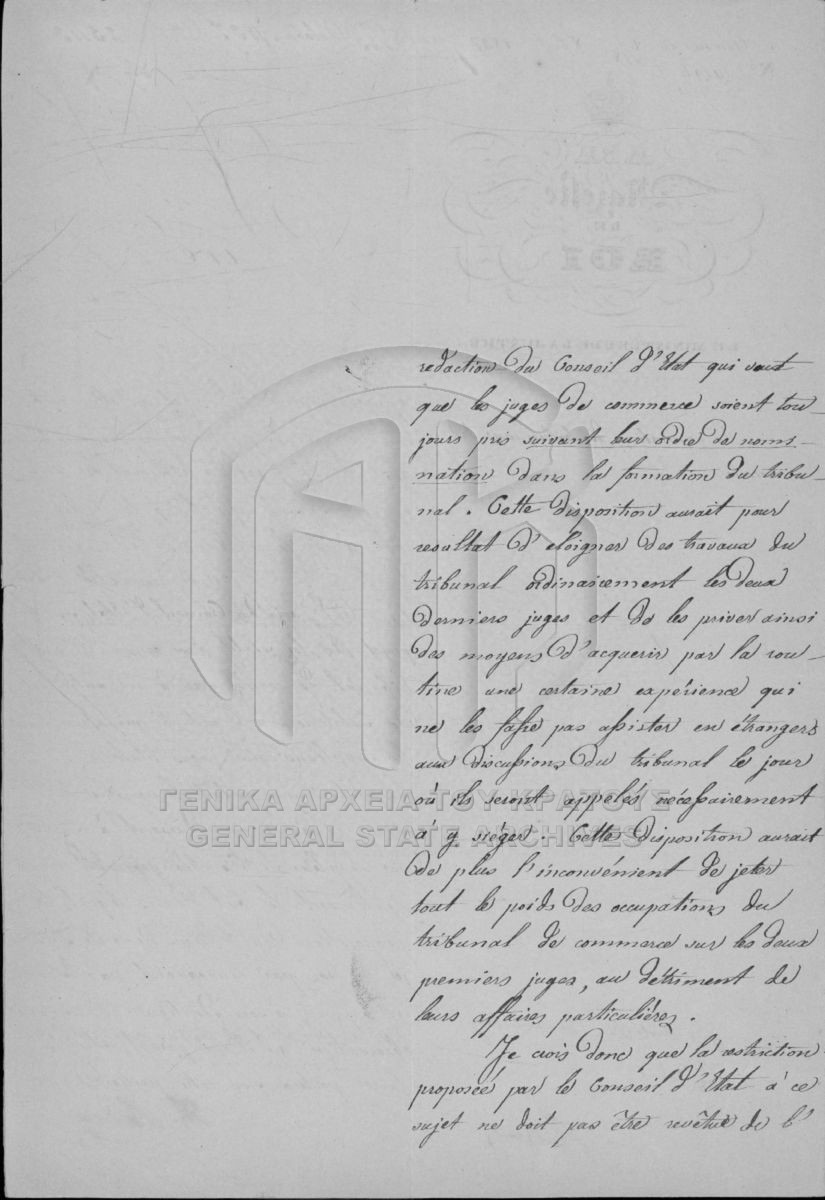 redaction du Conseil d'Etat qui veut
que les juges de commerce soient tou-
jours pris suivant leur ordre de nomi-
nation dans la formation du tribu-
nal. Cette disposition aurait pour
resultat d'eloigner des travaux du
tribunal ordinairement les deux
derniers juges et de les priver ainsi
des moyens d'acquerir par la rou-
tine une certaine expérience qui
ne les fasse pas assister en étrangers
aux discussions du tribunal le jour
où ils seront appelés nécessairement
ΓΕΝΙΚΑ ΑΡΧΕΙΑ ΤΟΥ ΚΡΑΤΟΥΣ
à y siéger. Cette disposition aurait
GENERAL STATE ARCHIVES
de plus l'inconvénient de jeter
tout le poids des occupations du
tribunal de commerce sur les deux
premiers juges, au détriment de
leurs affaires particulières.
Je crois donc que la restriction
proposée par le Conseil d'Etat à ce
sujet ne doit pas être revêtue de l'